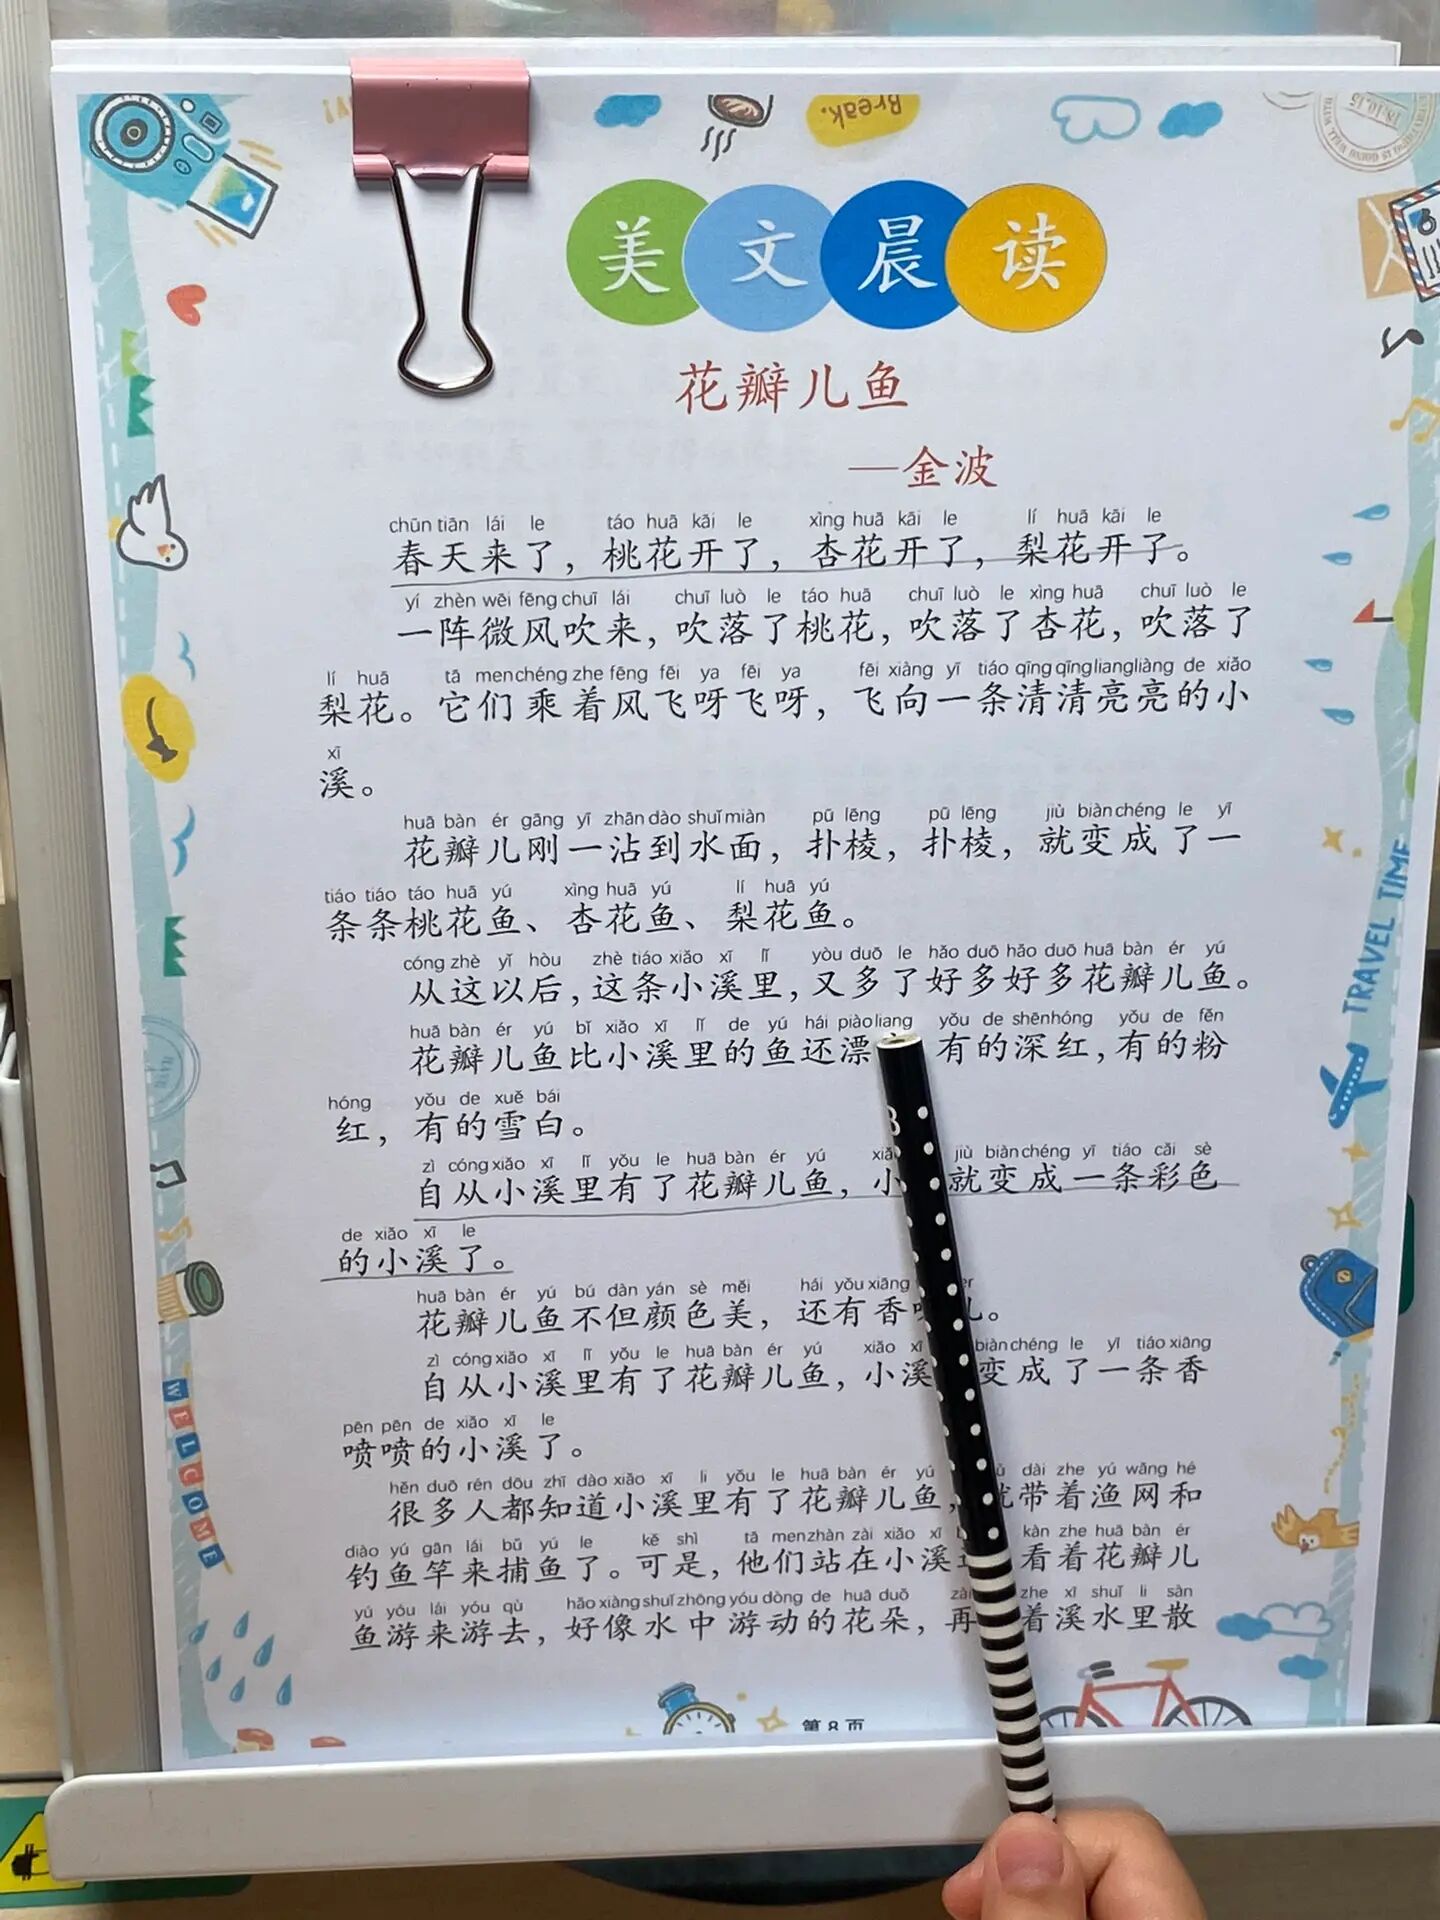 Break.
美文晨读
花瓣儿鱼
—金波
chūn tiān lái le táo huā kāi le xìng huā kāi le lí huā kāi le
春天来了，桃花开了，杏花开了，梨花开了。
yí zhèn wēi fēng chuī lái chuī luò le táo huā chuī luò le xìng huā chuī luò le
一阵微风吹来，吹落了桃花，吹落了杏花，吹落了
lí huā tā men chéng zhe fēng fēi ya fēi ya fēi xiàng yī tiáo qīng qīng liang liàng de xiǎo
梨花。它们乘着风飞呀飞呀，飞向一条清清亮亮的小
xī
溪。
huā bàn ér gāng yī zhān dào shuǐ miàn pū lēng pū lēng jiù biàn chéng le yī
花瓣儿刚一沾到水面，扑棱，扑棱，就变成了一
tiáo tiáo táo huā yú xìng huā yú lí huā yú
条条桃花鱼、杏花鱼、梨花鱼。
cóng zhè yǐ hòu zhè tiáo xiǎo xī lǐ yòu duō le hǎo duō hǎo duō huā bàn ér yú
从这以后，这条小溪里，又多了好多好多花瓣儿鱼。
huā bàn ér yú bǐ xiǎo xī lǐ de yú hái piào liang yǒu de shēn hóng yǒu de fěn
花瓣儿鱼比小溪里的鱼还漂 有的深红，有的粉
hóng yǒu de xuě bái
红，有的雪白。
zì cóng xiǎo xī lǐ yǒu le huā bàn ér yú jiù biàn chéng yī tiáo cǎi sè
自从小溪里有了花瓣儿鱼，小 就变成一条彩色
de xiǎo xī le
的小溪了。
huā bàn ér yú bú dàn yán sè měi hái yǒu xiāng
花瓣儿鱼不但颜色美，还有香 儿。
zì cóng xiǎo xī lǐ yǒu le huā bàn ér yú xiǎo xī biàn chéng le yī tiáo xiāng
自从小溪里有了花瓣儿鱼，小溪 变成了一条香
pēn pēn de xiǎo xī le
喷喷的小溪了。
hěn duō rén dōu zhī dào xiǎo xī li yǒu le huā bàn ér yú dài zhe yú wǎng hé
很多人都知道小溪里有了花瓣儿鱼，就带着渔网和
diào yú gān lái bǔ yú le kě shì tā men zhàn zài xiǎo xī kàn zhe huā bàn ér
钓鱼竿来捕鱼了。可是，他们站在小溪 看着花瓣儿
yú yóu lái yóu qù hǎo xiàng shuǐ zhōng yóu dòng de huā duǒ zhe xī shuǐ li sàn
鱼游来游去，好像水中游动的花朵，再 着溪水里散
第8页
TRAVEL TIME
WELCOME